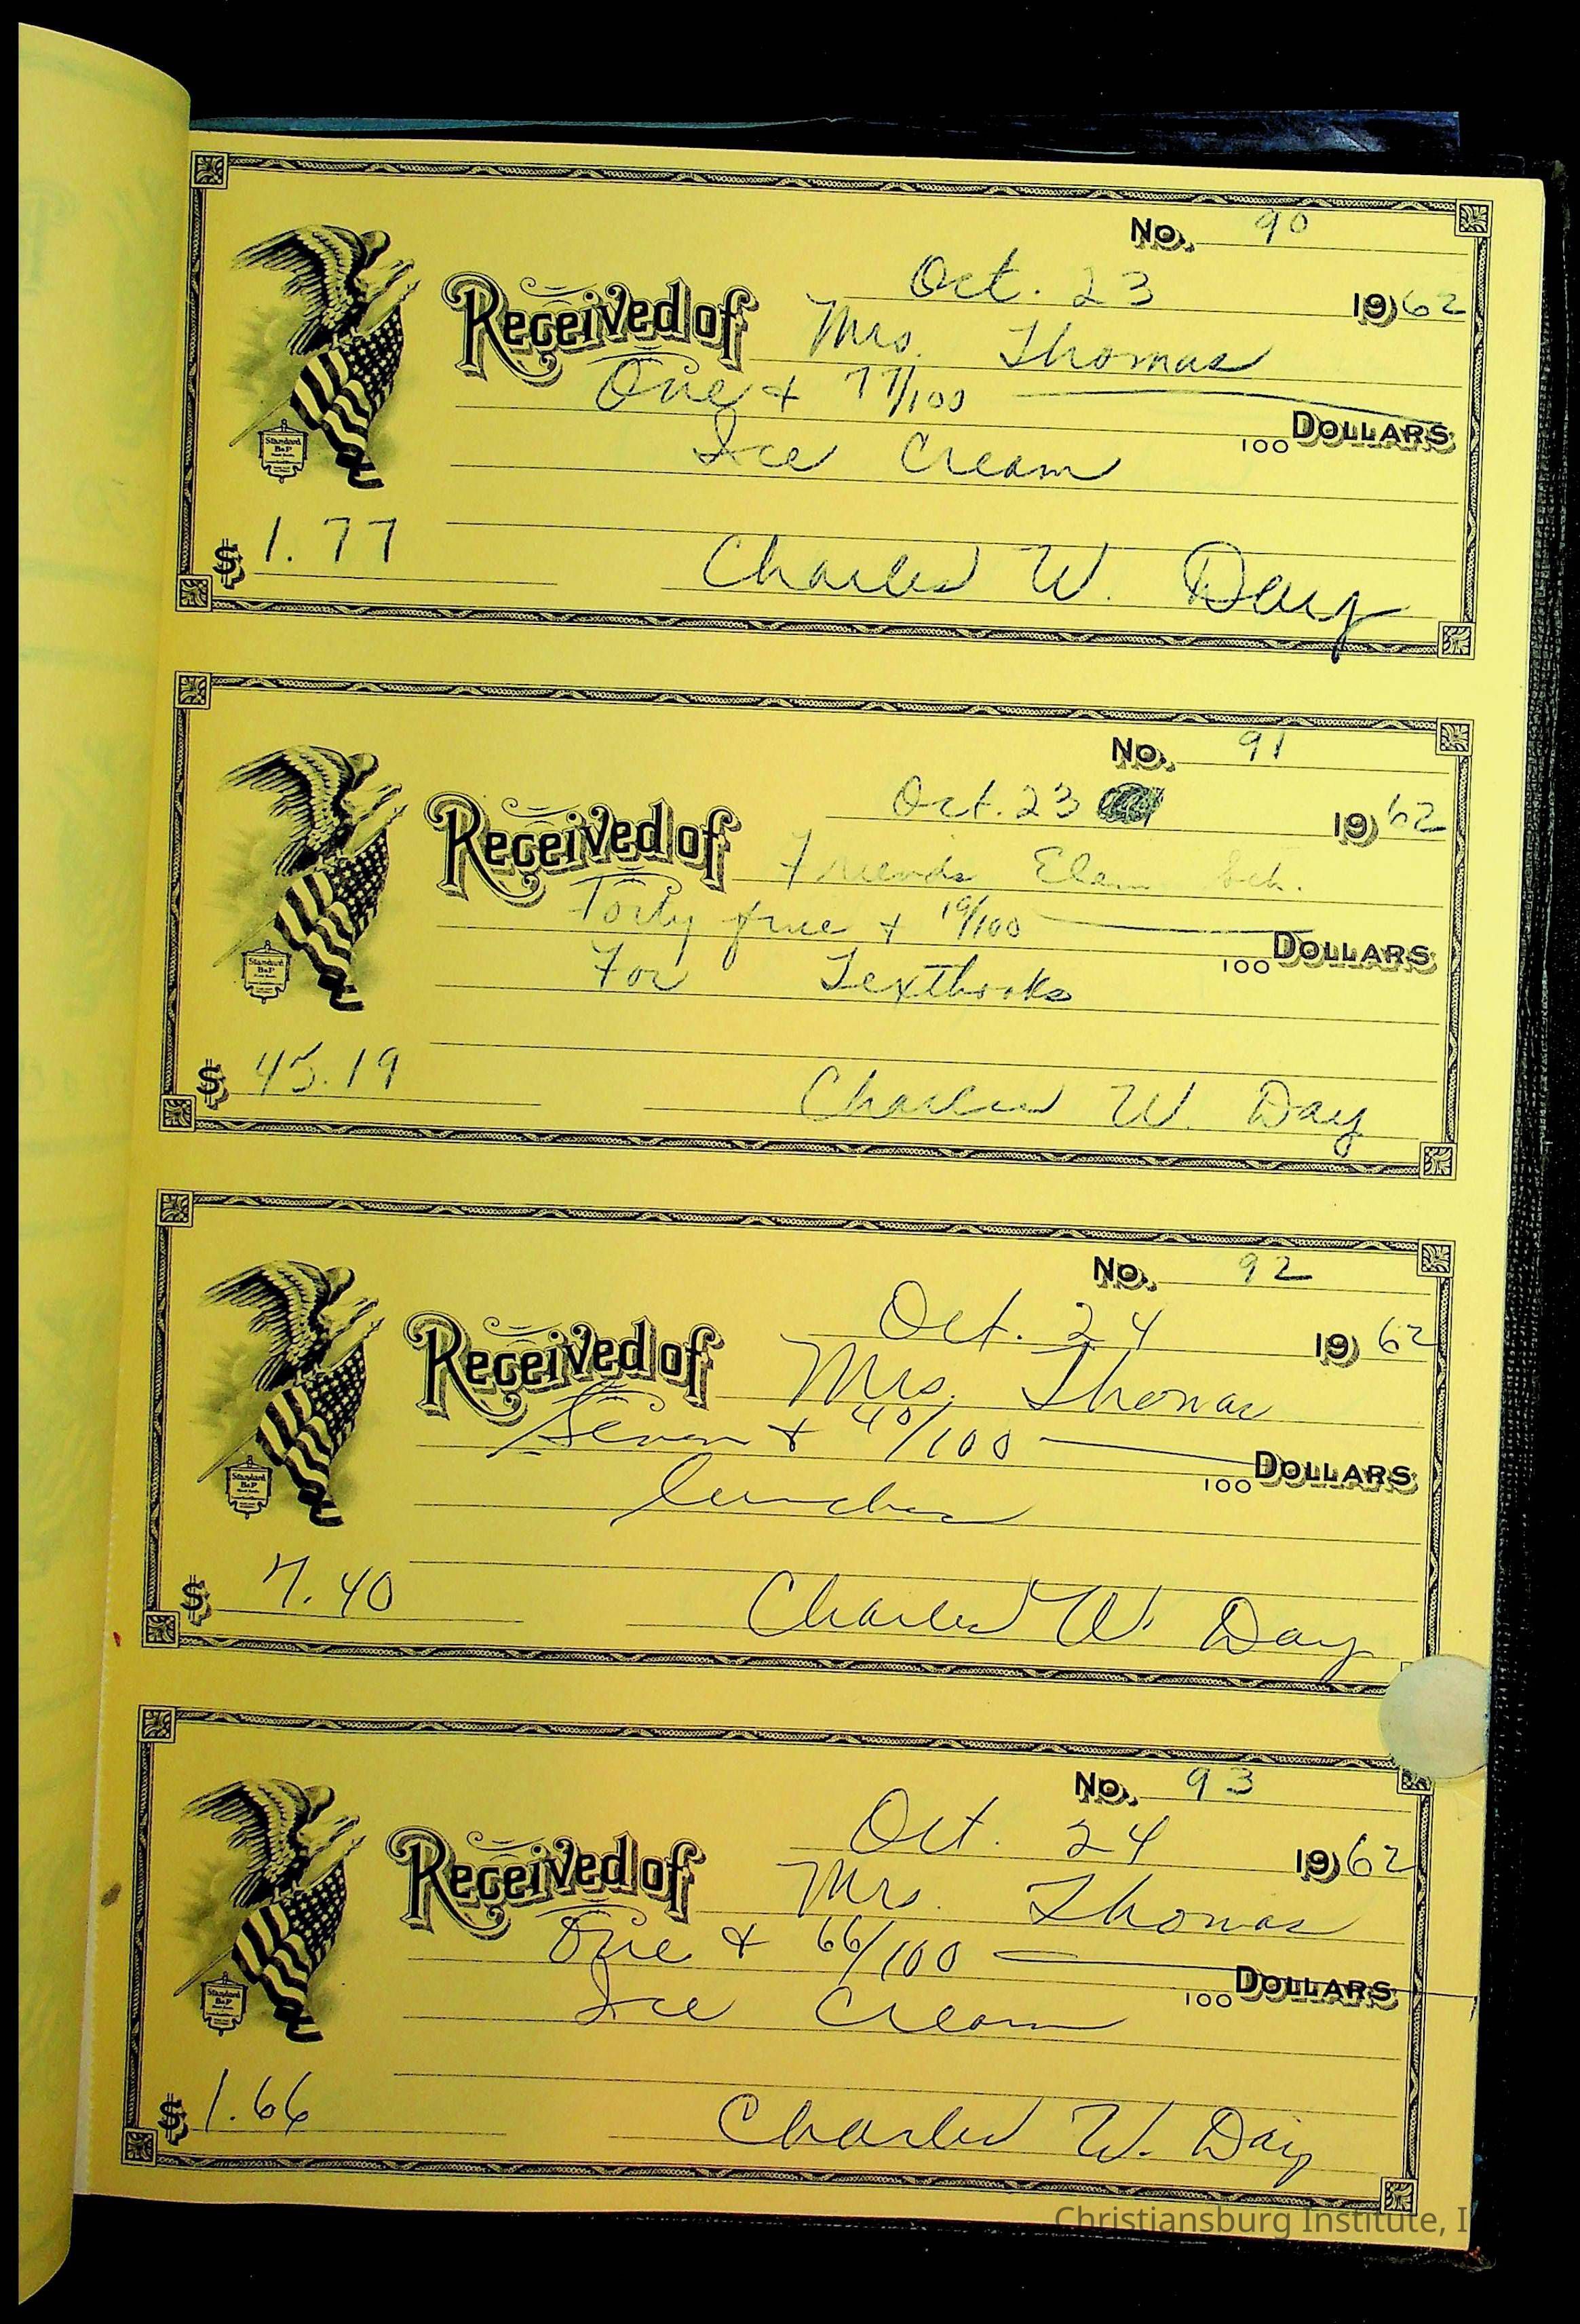 No. 90
Oct. 23 1962
Received of Mrs. Thomas
One + 77/100
100 DOLLARS
Ice Cream
$ 1.77
Charles W. Day
Standard
B&P
No. 91
Oct. 23 1962
Received of Friends Elem Sch.
Forty five + 19/100
100 DOLLARS
For Textbooks
$ 45.19
Charles W. Day
Standard
B&P
No. 92
Oct. 24 1962
Received of Mrs. Thomas
Seven + 40/100
100 DOLLARS
lunches
$ 7.40
Charles W. Day
Standard
B&P
No. 93
Oct. 24 1962
Received of Mrs. Thomas
One + 66/100
100 DOLLARS
Ice Cream
$ 1.66
Charles W. Day
Standard
B&P
Christiansburg Institute, I